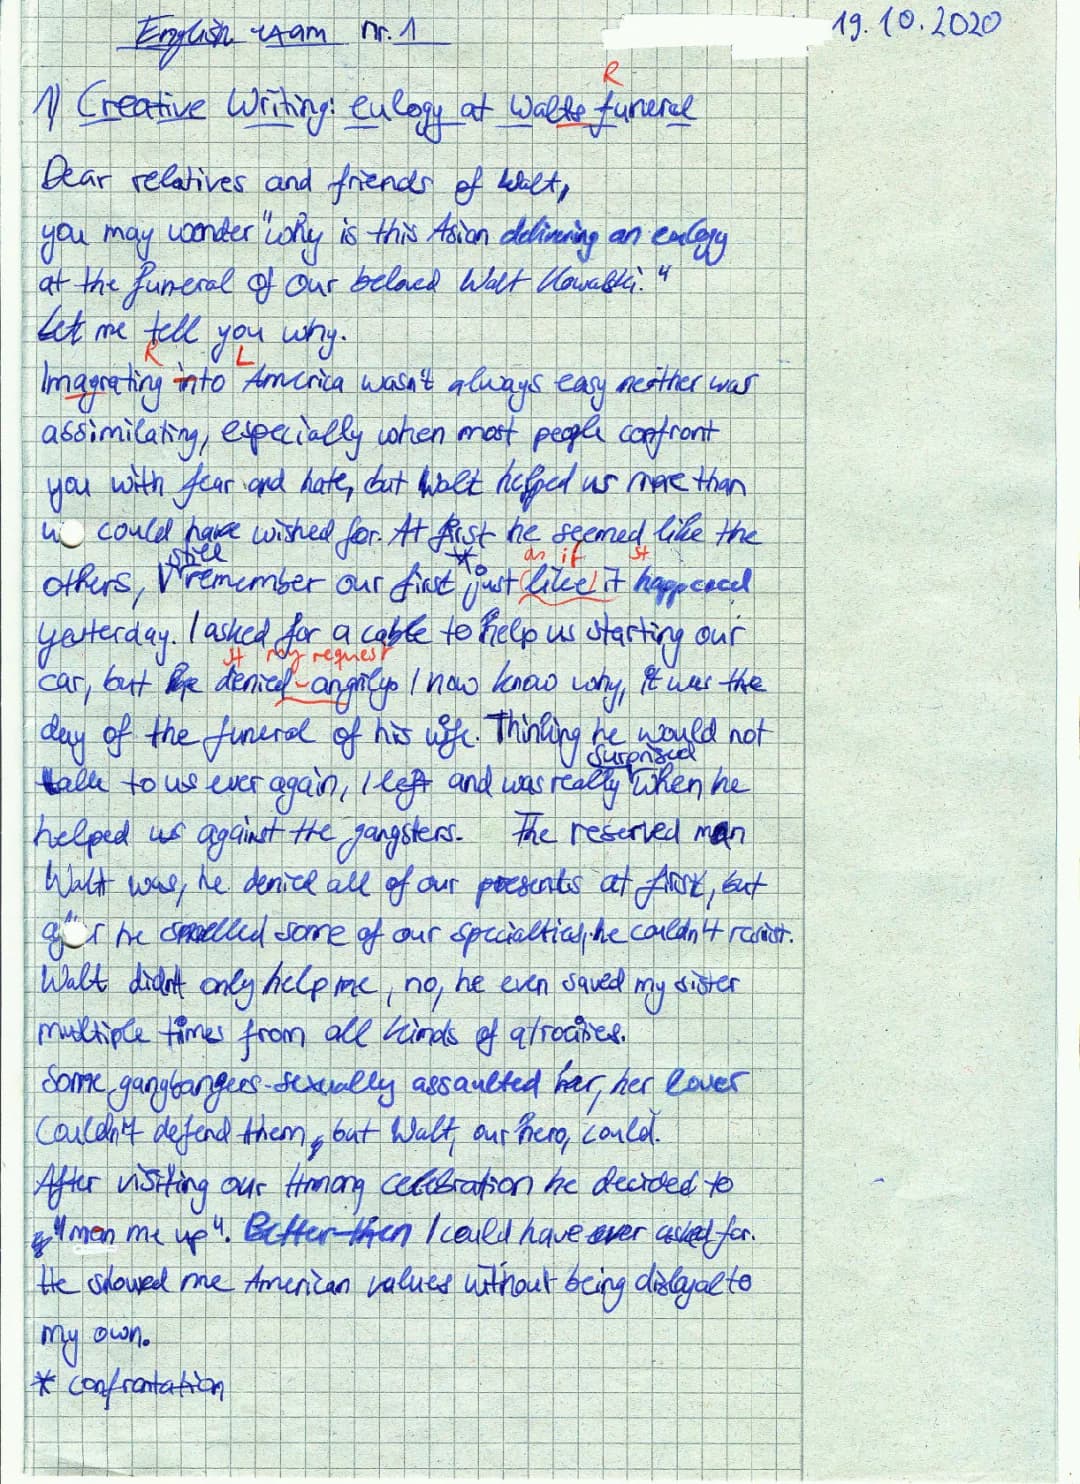 English exam nr. 1
19.10.2020
R
1) Creative Writing: eulogy at Walts funeral
Dear relatives and friends of Walt,
you may wonder "why is this Asian delivering an eulogy
at the funeral of our beloved Walt Kowalski."
Let me tell you why.
R L
Imagrating into America wasn't always easy neither was
assimilating, especially when most people confront
you with fear and hate, but Walt helped us more than
we could have wished for. At first he seemed like the
still * as if st
others, I remember our first just (like) it happened
yesterday. I asked for a cable to help us starting our
st my request
car, but he denied angrily. I now know why, it was the
day of the funeral of his wife. Thinking he would not
surprised
talk to us ever again, I left and was really when he
helped us against the gangsters. The reserved man
Walt was, he denied all of our presents at first, but
after he smelled some of our specialties, he couldn't resist.
Walt didn't only help me, no, he even saved my sister
multiple times from all kinds of atrocities.
Some gangbangers sexually assaulted her, her lover
couldn't defend them, but Walt, our hero, could.
After visiting our Hmong celebration he decided to
"man me up". Better then I could have ever asked for.
He showed me American values without being disloyal to
my own.
* confrontation